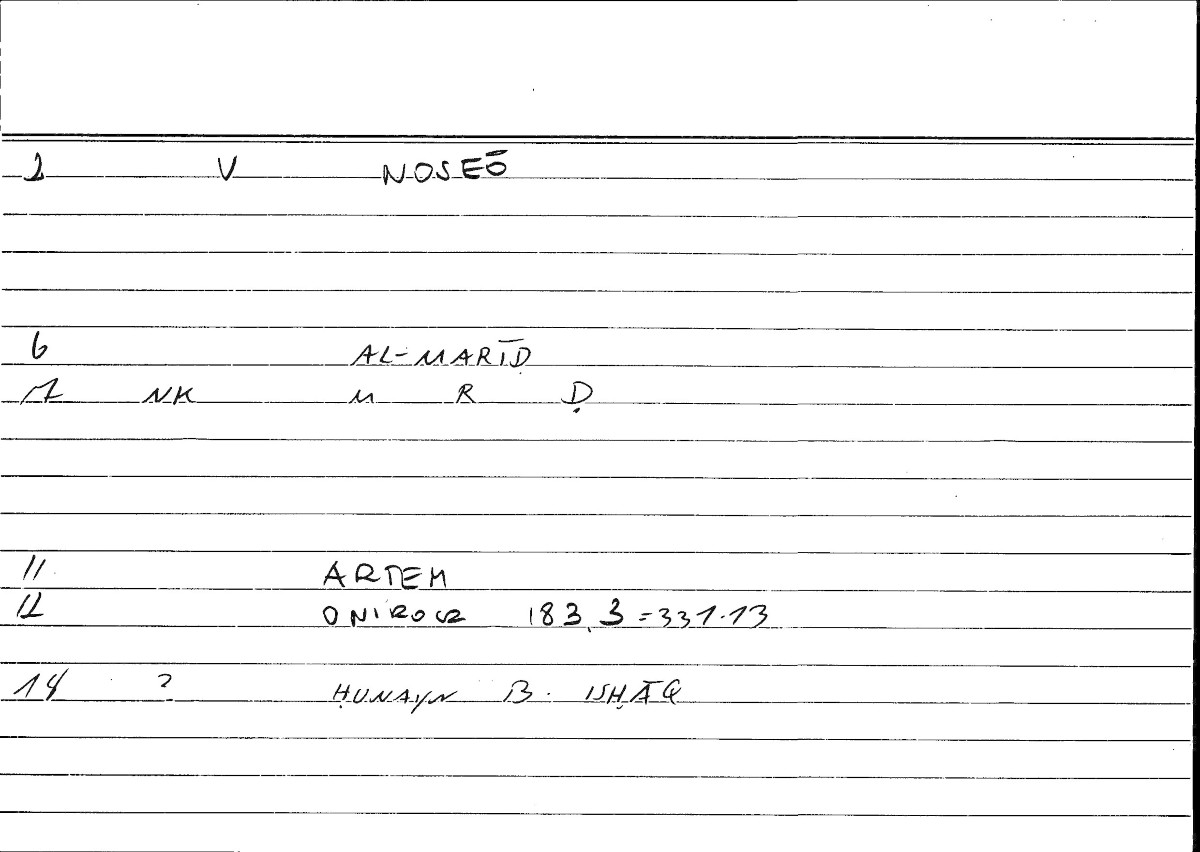 1 V NOSEŌ
6 AL-MARĪḌ
7 NK M R Ḍ
11 ARTEM
12 ONIROCR 183,3=331.13
14 ? ḤUNAYN B. ISḤĀQ